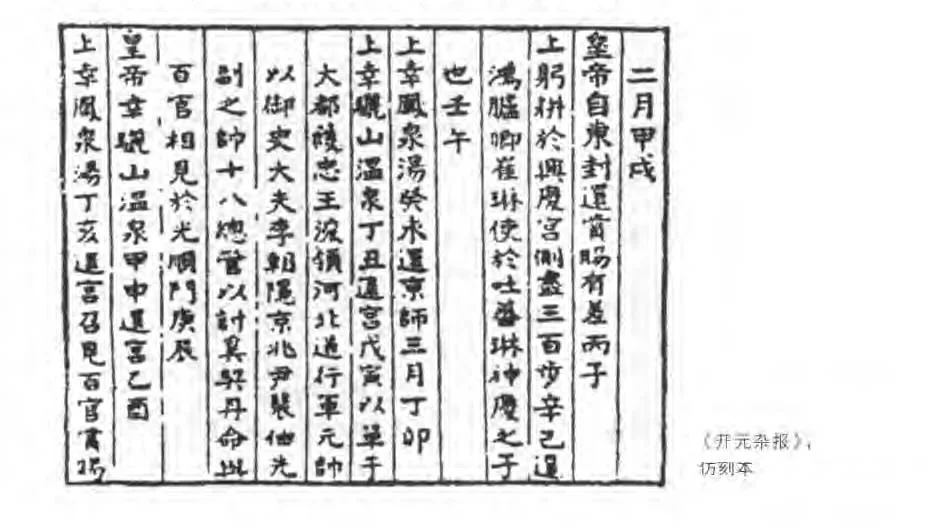 二月甲戌
皇帝自東封還賞賜有差丙子
上躬耕於興慶宮側盡三百步辛己遣
鴻臚卿崔琳使於吐蕃琳神慶之子
也壬午
上幸鳳泉湯癸未還京師三月丁卯
上幸驪山溫泉丁丑還宮戊寅以單于
大都護忠王浚領河北道行軍元帥
以御史大夫李朝隱京兆尹裴伷先
副之帥十八總管以討奚契丹命與
百官相見於光順門庚辰
皇帝幸驪山溫泉甲申還宮乙酉
上幸鳳泉湯丁亥還宮召見百官賞賜
《开元杂报》,
仿刻本